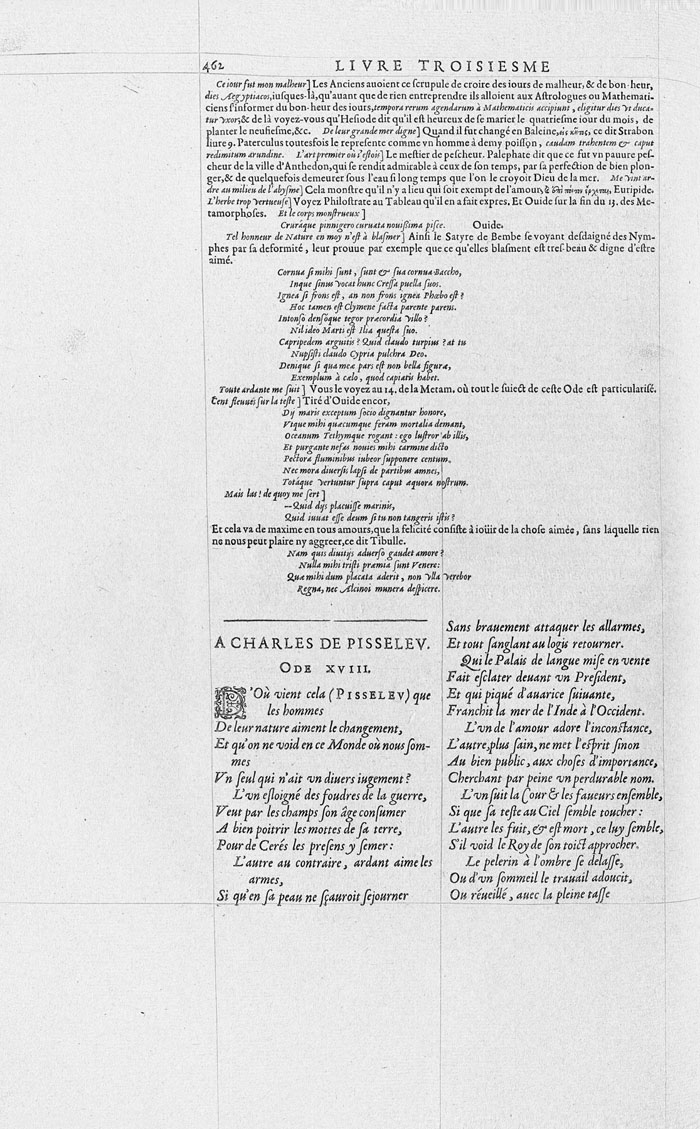 462 LIVRE TROISIESME
Ce iour fut mon malheur] Les Anciens auoient ce scrupule de croire des iours de malheur, & de bon-heur,
dies Aegyptiacos, iusques-là, qu'auant que de rien entreprendre ils alloient aux Astrologues ou Mathemati-
ciens s'informer du bon-heur des iours, tempora rerum agendarum à Mathematicis accipiunt, eligitur dies vt duca-
tur vxor, & de là voyez-vous qu'Hesiode dit qu'il est heureux de se marier le quatriesme iour du mois, de
planter le neufiesme, &c. De leur grande mer digne] Quand il fut changé en Baleine, εἰς κῆτος, ce dit Strabon
liure 9. Paterculus toutesfois le represente comme vn homme à demy poisson, caudam trahentem & caput
redimitum arundine. L'art premier où i'estois] Le mestier de pescheur. Palephate dit que ce fut vn pauure pes-
cheur de la ville d'Anthedon, qui se rendit admirable à ceux de son temps, par sa perfection de bien plon-
ger, & de quelquefois demeurer sous l'eau si long temps que l'on le croyoit Dieu de la mer. Me vint ar-
dre au milieu de l'abysme] Cela monstre qu'il n'y a lieu qui soit exempt de l'amour, Euripide.
L'herbe trop vertueuse] Voyez Philostrate au Tableau qu'il en a fait expres. Et Ouide sur la fin du 13. des Me-
tamorphoses. Et le corps monstrueux]
Cruraque pinnigero curuata nouissima pisce. Ouide.
Tel honneur de Nature en moy n'est à blasmer] Ainsi le Satyre de Bembe se voyant desdaigné des Nym-
phes par sa deformité, leur prouue par exemple que ce qu'elles blasment est tres-beau & digne d'estre
aimé.
Cornua si mihi sunt, sunt & sua cornua Baccho,
Inque sinus vocat hunc Cressa puella suos.
Ignea si frons est, an non frons ignea Phœbo est?
Hoc tamen est Clymene facta parente parens.
Intonso densóque tegor præcordia villo?
Nil ideo Marti est Ilia questa suo.
Capripedem arguitis? Quid claudo turpius? at tu
Nupsisti claudo Cypria pulchra Deo.
Denique si qua mea pars est non bella figura,
Exemplum à cælo, quod capiatis habet.
Toute ardante me suit] Vous le voyez au 14. de la Metam. où tout le suiect de ceste Ode est particularisé.
Cent fleuues sur la teste] Tiré d'Ouide encor,
Dij maris exceptum socio dignantur honore,
Vtque mihi quæcumque feram mortalia demant,
Oceanum Tethymque rogant: ego lustror ab illis,
Et purgante nefas nouies mihi carmine dicto
Pectora fluminibus iubeor supponere centum.
Nec mora diuersis lapsi de partibus amnes,
Totáque vertuntur supra caput æquora nostrum.
Mais las! de quoy me sert]
--Quid dijs placuisse marinis,
Quid iuuat esse deum si tu non tangeris istis?
Et cela va de maxime en tous amours, que la felicité consiste à ioüir de la chose aimée, sans laquelle rien
ne nous peut plaire ny aggreer, ce dit Tibulle.
Nam quis diuitijs aduerso gaudet amore?
Nulla mihi tristi præmia sunt Venere:
Quæ mihi dum placata aderit, non vlla verebor
Regna, nec Alcinoi munera despicere.
A CHARLES DE PISSELEV.
ODE XVIII.
D'Où vient cela (PISSELEV) que
les hommes
De leur nature aiment le changement,
Et qu'on ne void en ce Monde où nous som-
mes
Vn seul qui n'ait vn diuers iugement?
L'vn esloigné des foudres de la guerre,
Veut par les champs son âge consumer
A bien poitrir les mottes de sa terre,
Pour de Cerés les presens y semer:
L'autre au contraire, ardant aime les
armes,
Si qu'en sa peau ne sçauroit sejourner
Sans brauement attaquer les allarmes,
Et tout sanglant au logis retourner.
Qui le Palais de langue mise en vente
Fait esclater deuant vn President,
Et qui piqué d'auarice suiuante,
Franchit la mer de l'Inde à l'Occident.
L'vn de l'amour adore l'inconstance,
L'autre, plus sain, ne met l'esprit sinon
Au bien public, aux choses d'importance,
Cherchant par peine vn perdurable nom.
L'vn suit la Cour & les faueurs ensemble,
Si que sa teste au Ciel semble toucher:
L'autre les fuit, & est mort, ce luy semble,
S'il void le Roy de son toict approcher.
Le pelerin à l'ombre se delasse,
Ou d'vn sommeil le trauail adoucit,
Ou réueillé, auec la pleine tasse